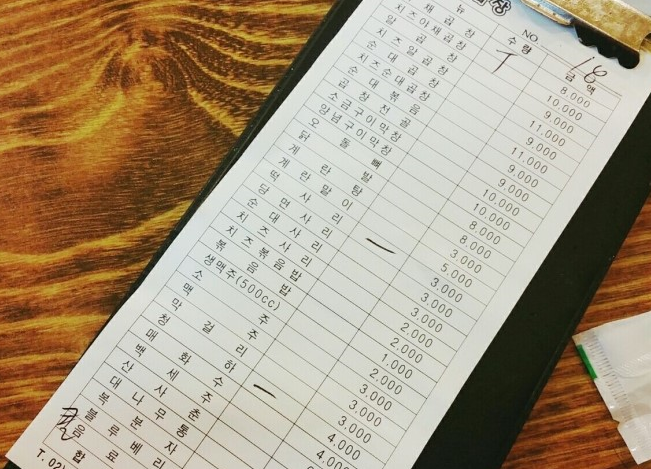 NO. 18
수량
금액
곱창
치즈야채곱창
알곱창
치즈알곱창
순대곱창
치즈순대곱창
순대볶음
곱창전골
소금구이막창
양념구이막창
오돌뼈
닭발
계란탕
계란말이
당면사리
순대사리
치즈사리
볶음밥
생맥주(500cc)
맥주
소주
막걸리
청하
매화수
백세주
산사춘
대나무통
복분자
블루베리
음료
합
T. 02)
8.000
10.000
9.000
11.000
9.000
11.000
9.000
9.000
10.000
10.000
8.000
8.000
3.000
5.000
3.000
3.000
3.000
2.000
2.000
1.000
2.000
3.000
3.000
3.000
4.000
4.000